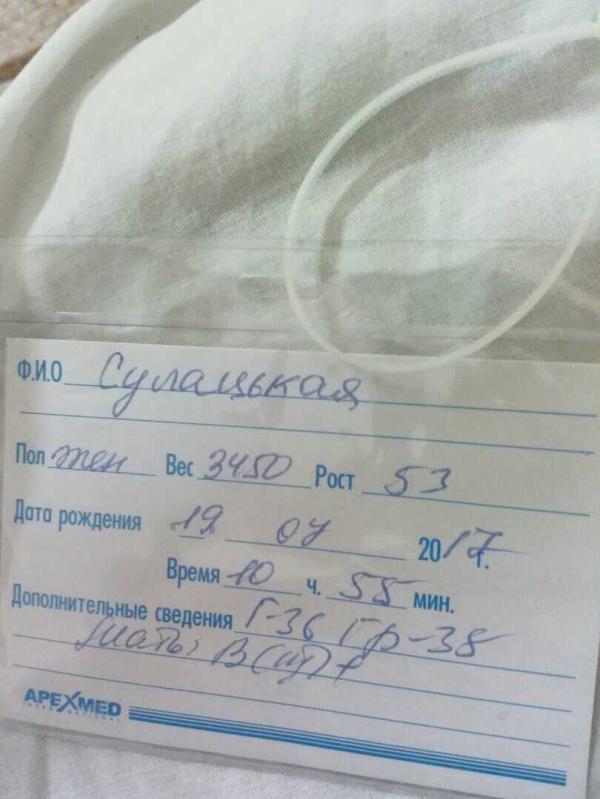 Ф.И.О Сулацькая
Пол жен Вес 3450 Рост 53
Дата рождения 19 04 2017 г.
Время 10 ч. 55 мин.
Дополнительные сведения Г-36 Гр-38
Мать: В(III)+
APEXMED
INTERNATIONAL